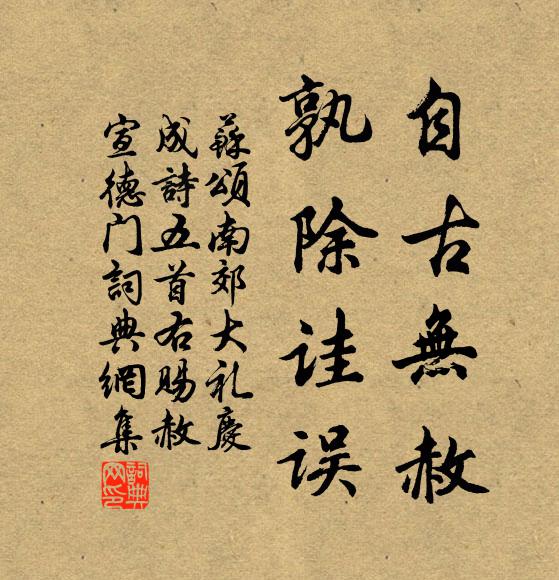 自古無赦
孰除诖误
蘇頌南郊大礼慶
成詩五首右賜赦
宣德门詞典網集
詞典网印